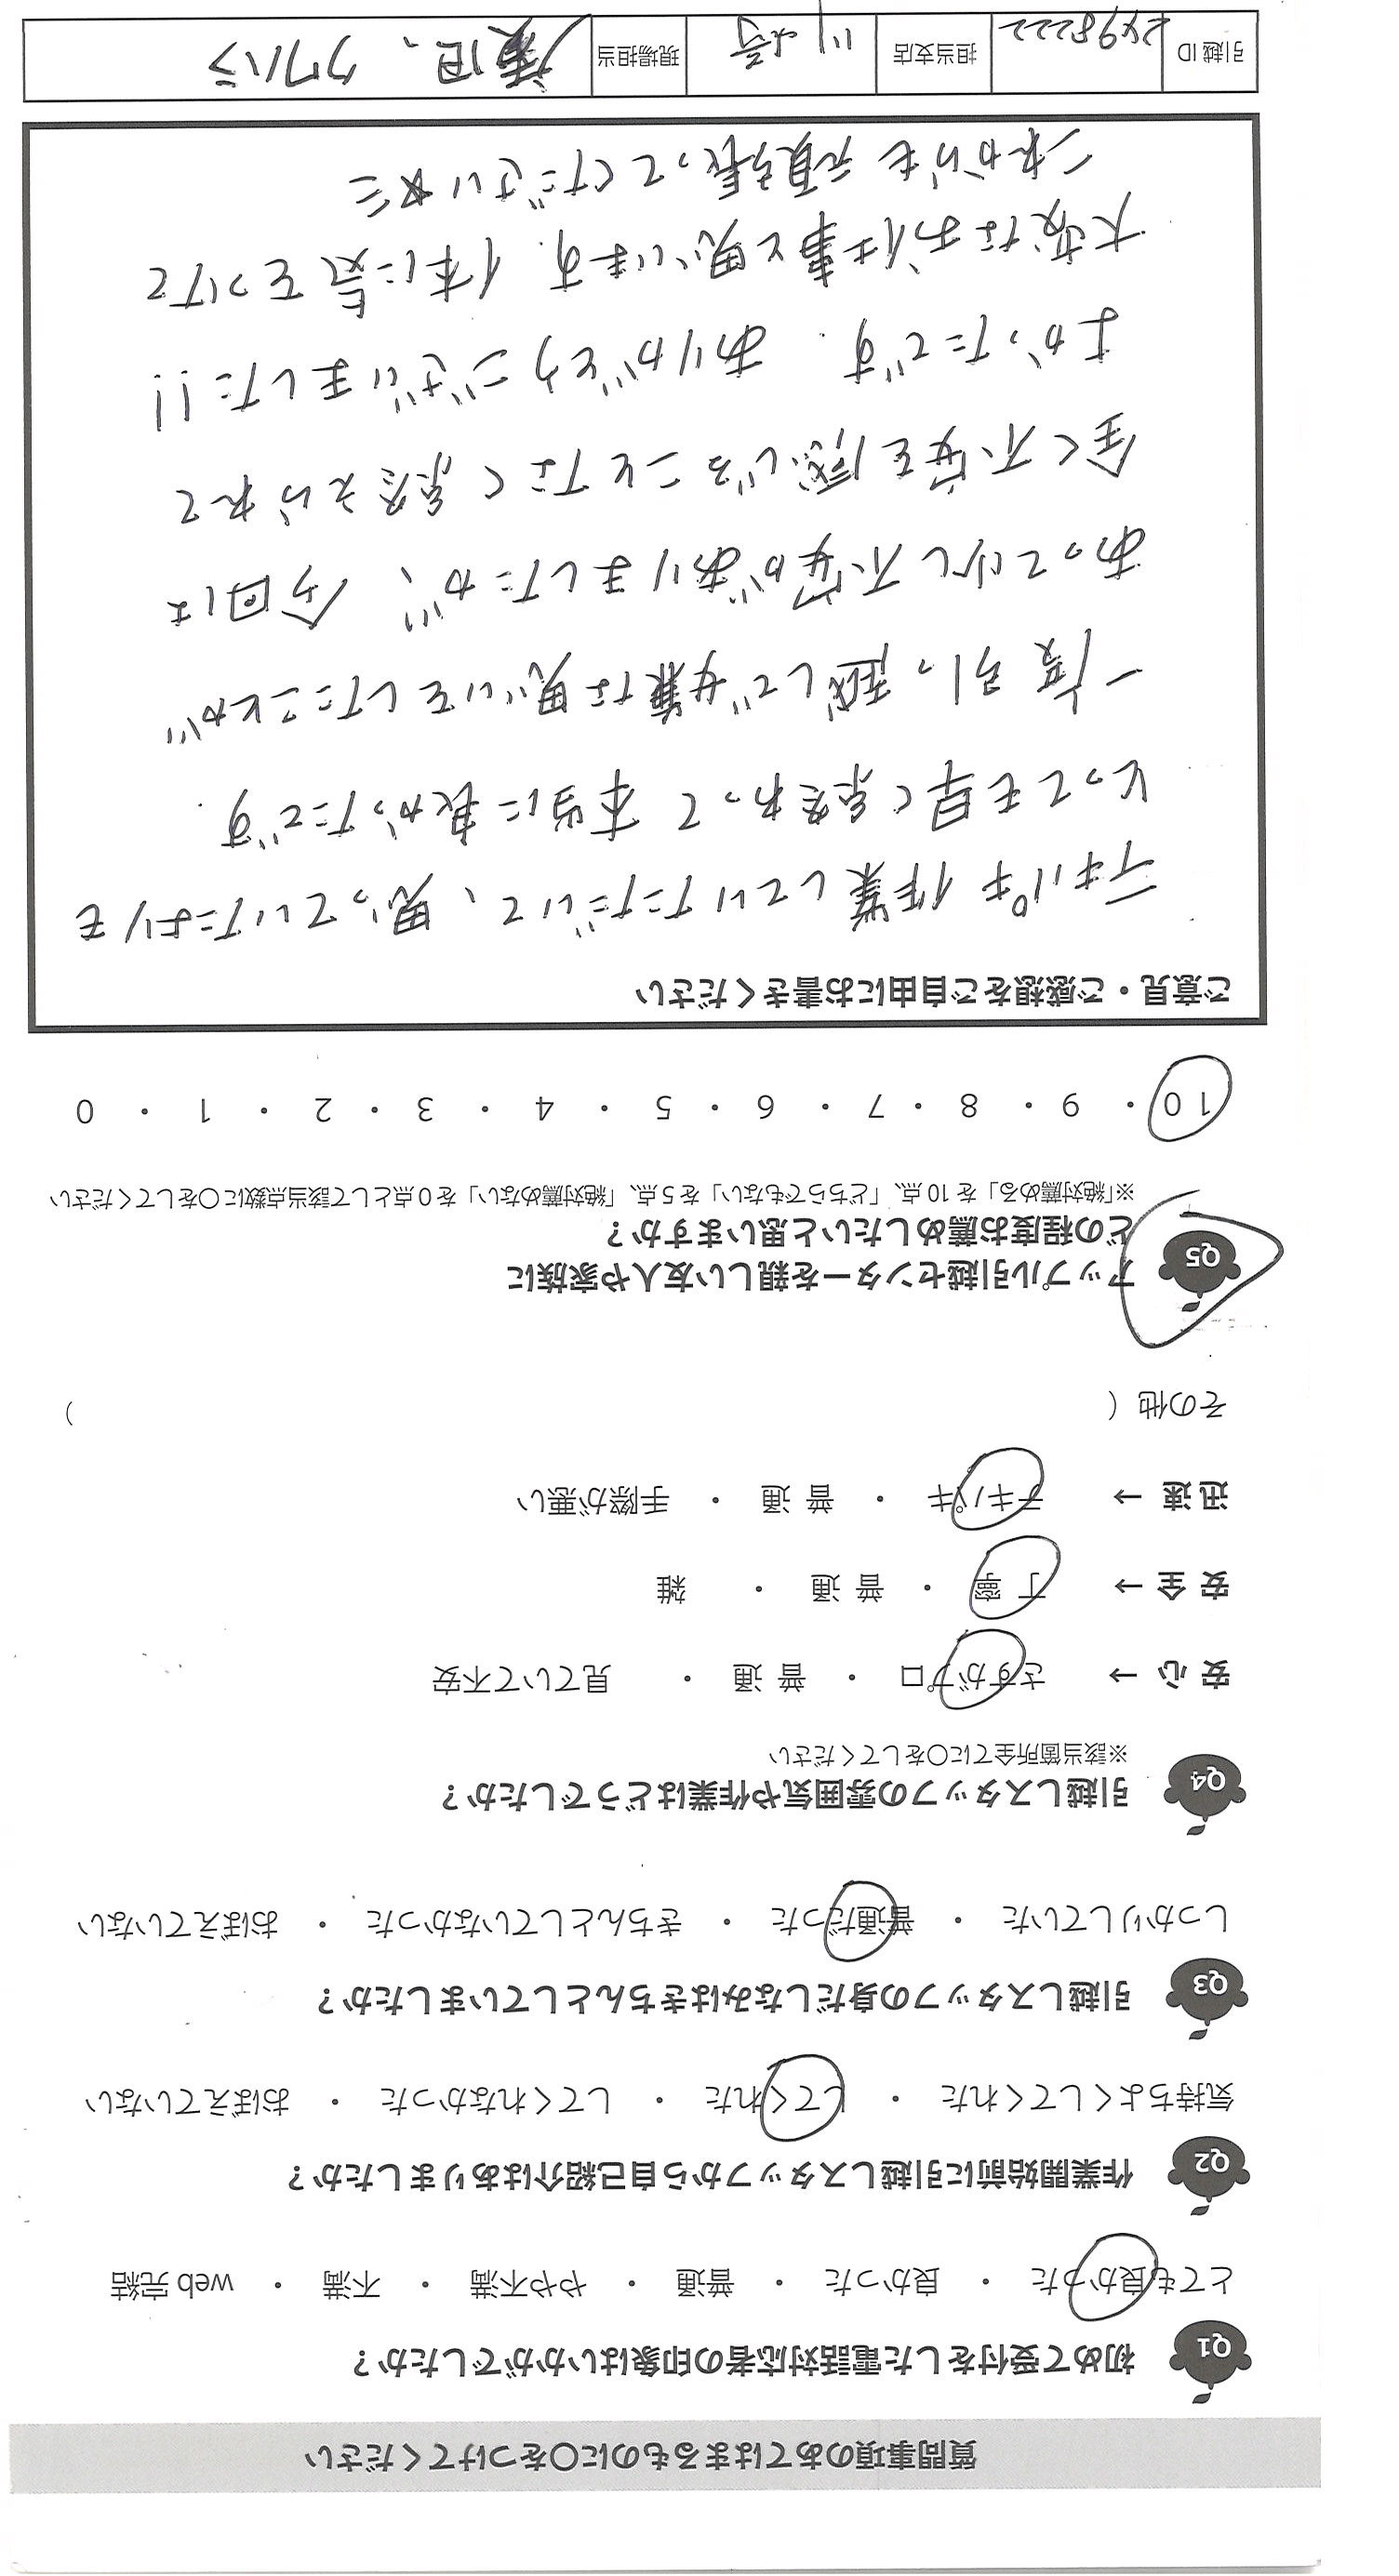 質問事項のあてはまるものに〇をつけてください
Q1 初めて受付をした電話対応者の印象はいかがでしたか？
とても良かった ・ 良かった ・ 普通 ・ やや不満 ・ 不満 ・ web 完結
Q2 作業開始前に引越しスタッフから自己紹介はありましたか？
気持ちよくしてくれた ・ してくれた ・ してくれなかった ・ おぼえていない
Q3 引越しスタッフの身だしなみはきちんとしていましたか？
しっかりしていた ・ 普通だった ・ きちんとしていなかった ・ おぼえていない
Q4 引越しスタッフの雰囲気や作業はどうでしたか？
※該当箇所全てに〇をしてください
安心 → さすがプロ ・ 普通 ・ 見ていて不安
安全 → 丁寧 ・ 普通 ・ 雑
迅速 → テキパキ ・ 普通 ・ 手際が悪い
その他（ ）
Q5 アップル引越センターを親しい友人や家族に
どの程度お薦めしたいと思いますか？
※「絶対薦める」を10点、「どちらでもない」を5点、「絶対薦めない」を0点として該当点数に〇をしてください
10 ・ 9 ・ 8 ・ 7 ・ 6 ・ 5 ・ 4 ・ 3 ・ 2 ・ 1 ・ 0
ご意見・ご感想をご自由にお書きください
テキパキ作業していただいて、思っていたよりも
とっても早く終わって本当に良かったです。
一度引っ越しで大変な思いをしたことが
あって少し不安がありましたが、今回は
全く不安を感じることなく終えられて
よかったです。ありがとうございました!!
大変なお仕事と思います。体に気をつけて
これからも頑張ってください
引越ID 2498222 担当支店 川崎 現場担当 クワハラ